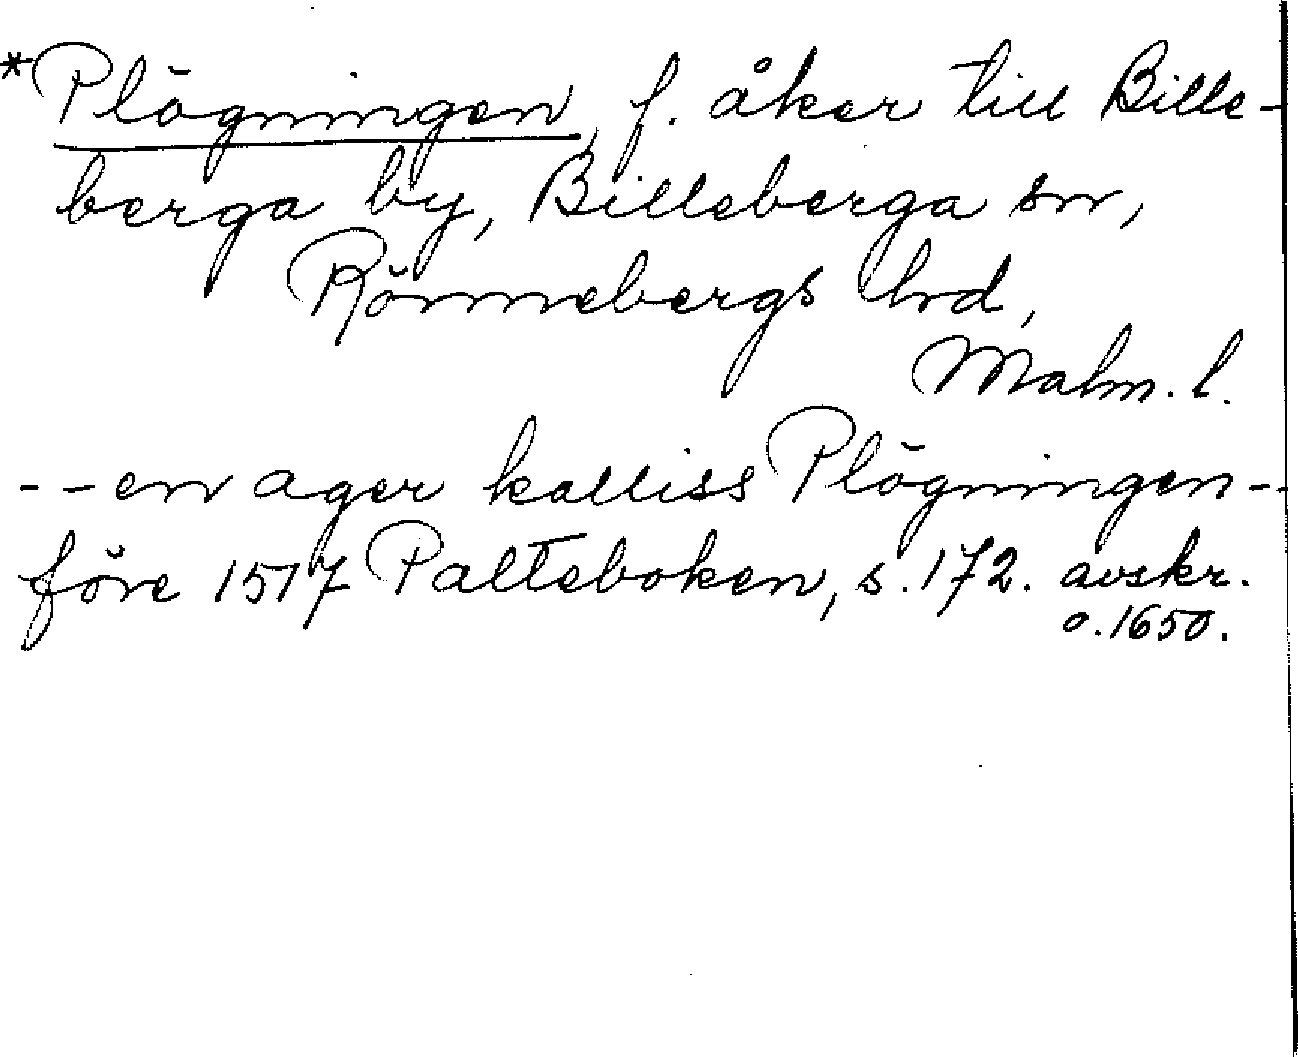 *Plögningen, f. åker till Bille-
berga by, Billeberga sn,
Rönnebergs hrd,
Malm. l.
--en ager kalliss Plögningen--
före 1517 Palteboken, s. 172. avskr.
o. 1650.